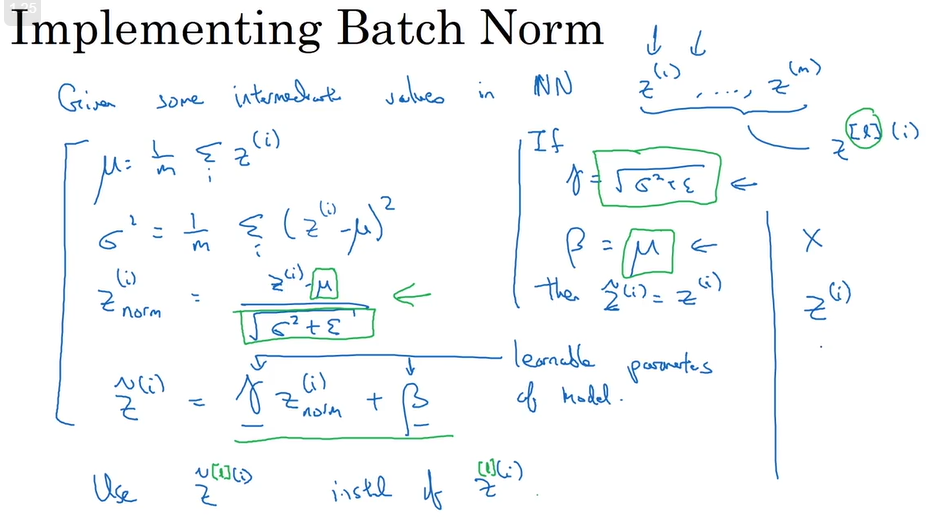 1:25
Implementing Batch Norm
Given some intermediate values in NN z^(i), ...., z^(m)
z^[l](i)
μ = 1/m Σ_i z^(i)
σ² = 1/m Σ_i (z^(i) - μ)²
z^(i)_norm = (z^(i) - μ) / √(σ² + ε)
z̃^(i) = γ z^(i)_norm + β
learnable parameters
of model.
If
γ = √(σ² + ε) ←
β = μ ←
then z̃^(i) = z^(i)
X
z^(i)
Use z̃^[l](i) instead of z^[l](i).